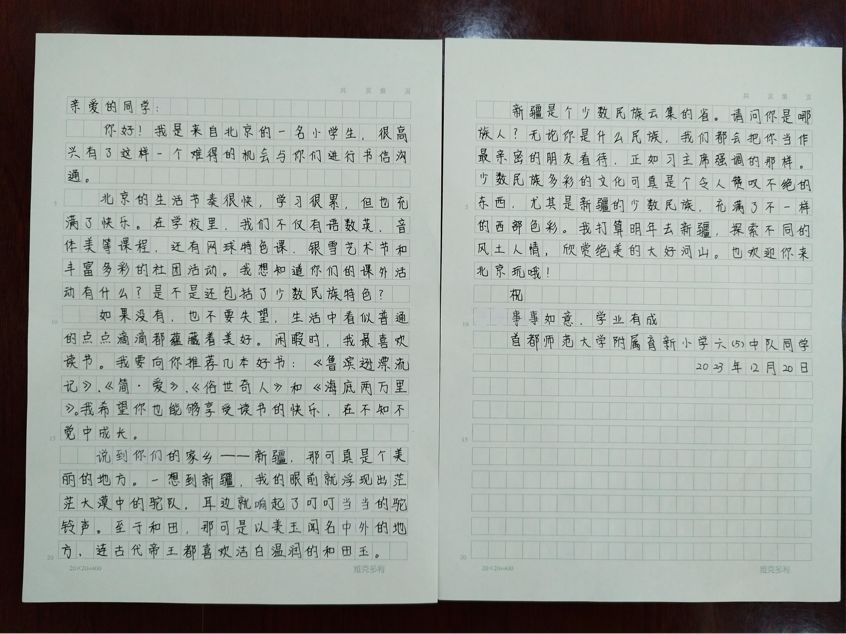 共 页 第 页
亲爱的同学:
你好!我是来自北京的一名小学生,很高
兴有了这样一个难得的机会与你们进行书信沟
通。
北京的生活节奏很快,学习很累,但也充
满了快乐。在学校里,我们不仅有语数英、音
体美等课程,还有网球特色课、银雪艺术节和
丰富多彩的社团活动。我想知道你们的课外活
动有什么?是不是还包括了少数民族特色?
如果没有,也不要失望,生活中看似普通
的点点滴滴都蕴藏着美好。闲暇时,我最喜欢
读书。我要向你推荐几本好书:《鲁滨逊漂流
记》、《简·爱》、《俗世奇人》和《海底两万里
》。我希望你也能够享受读书的快乐,在不知不
觉中成长。
说到你们的家乡——新疆,那可真是个美
丽的地方。一想到新疆,我的眼前就浮现出茫
茫大漠中的驼队,耳边就响起了叮叮当当的驼
铃声。至于和田,那可是以美玉闻名中外的地
方,连古代帝王都喜欢洁白温润的和田玉。
20×20=400
共 页 第 页
新疆是个少数民族云集的省。请问你是哪
族人?无论你是什么民族,我们都会把你当作
最亲密的朋友看待,正如习主席强调的那样。
少数民族多彩的文化可真是个令人赞叹不绝的
东西,尤其是新疆的少数民族,充满了不一样
的西部色彩。我打算明年去新疆,探索不同的
风土人情,欣赏绝美的大好河山。也欢迎你来
北京玩哦!
祝
事事如意,学业有成
首都师范大学附属育新小学六(5)中队同学
2023年12月20日
20×20=400